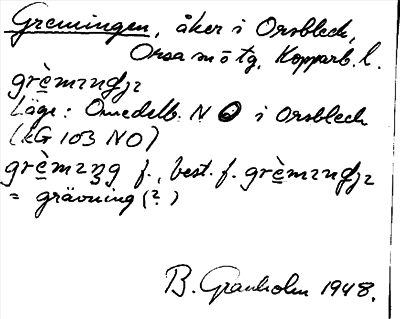 Greningen, åker i Orsbleck,
Orsa sn ö tg. Kopparb. l.
grèmıngȷı
Läge: Omedelb. N O i Orsbleck
(kG 103 NO)
grèmıng f., best. f. grèmıngȷı
= grävning (?)
B. Granholm 1948.